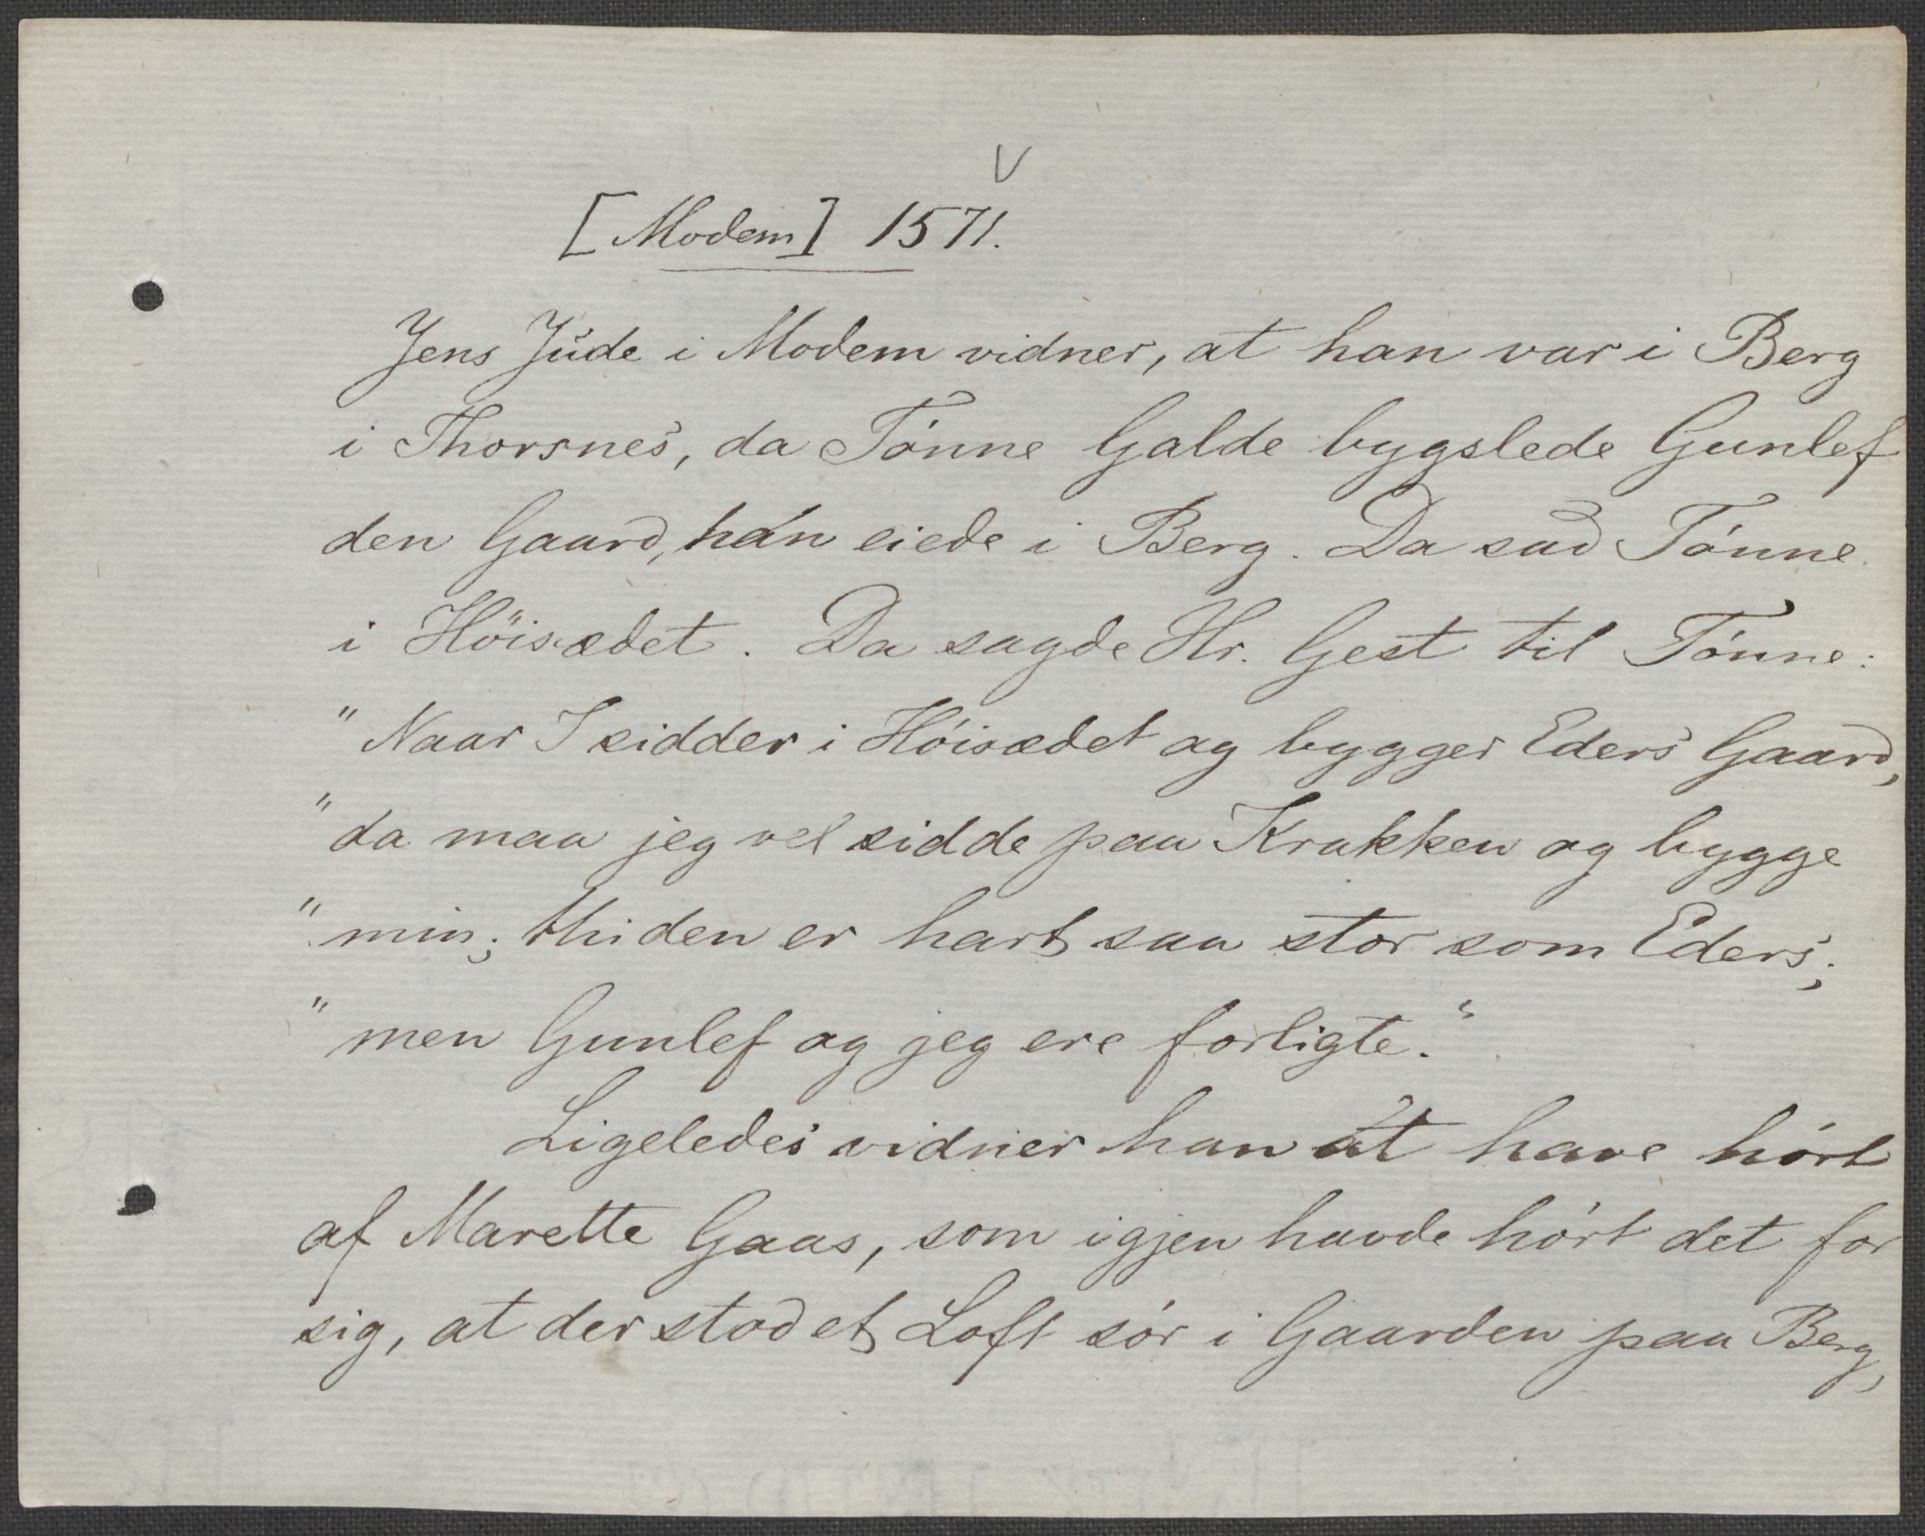 V
[Modem] 1571.
Jens Jude i Modem vidner, at han var i Berg
i Thorsnes, da Tónne Galde bygslede Gunlef
den Gaard, han eiede i Berg. Da sad Tónne
i Höisædet. Da sagde Hr. Gest til Tónne:
"Naar I sidder i Hóisædet og bygger Eders Gaard,
"da maa jeg vel sidde paa Krakken og bygge
"min; thi den er hart saa stor som Eders;
"men Gunlef og jeg ere forligte."
Ligeledes vidner han at have hórt
af Marette Gaas, som igjen havde hórt det for
sig, at der stod et Loft sór i Gaarden paa Berg,